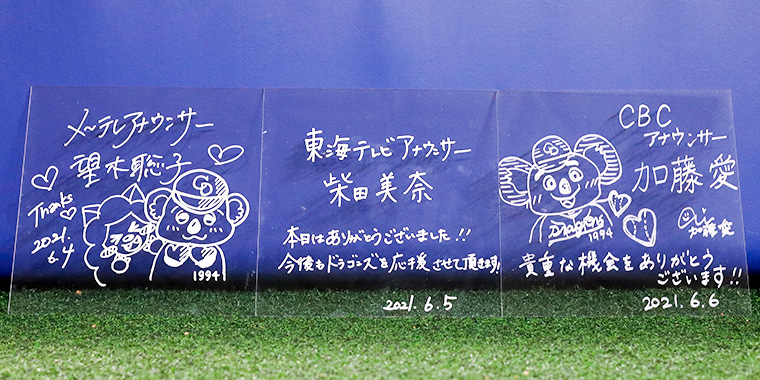 メ〜テレアナウンサー
望木聡子
Thanks
2021.
6.4
CD
1994
東海テレビアナウンサー
柴田美奈
本日はありがとうございました!!
今後もドラゴンズを応援させて頂きます!
2021.6.5
CBC
アナウンサー
加藤愛
Dragons
1994
加藤愛
貴重な機会をありがとう
ございます!!
2021.6.6